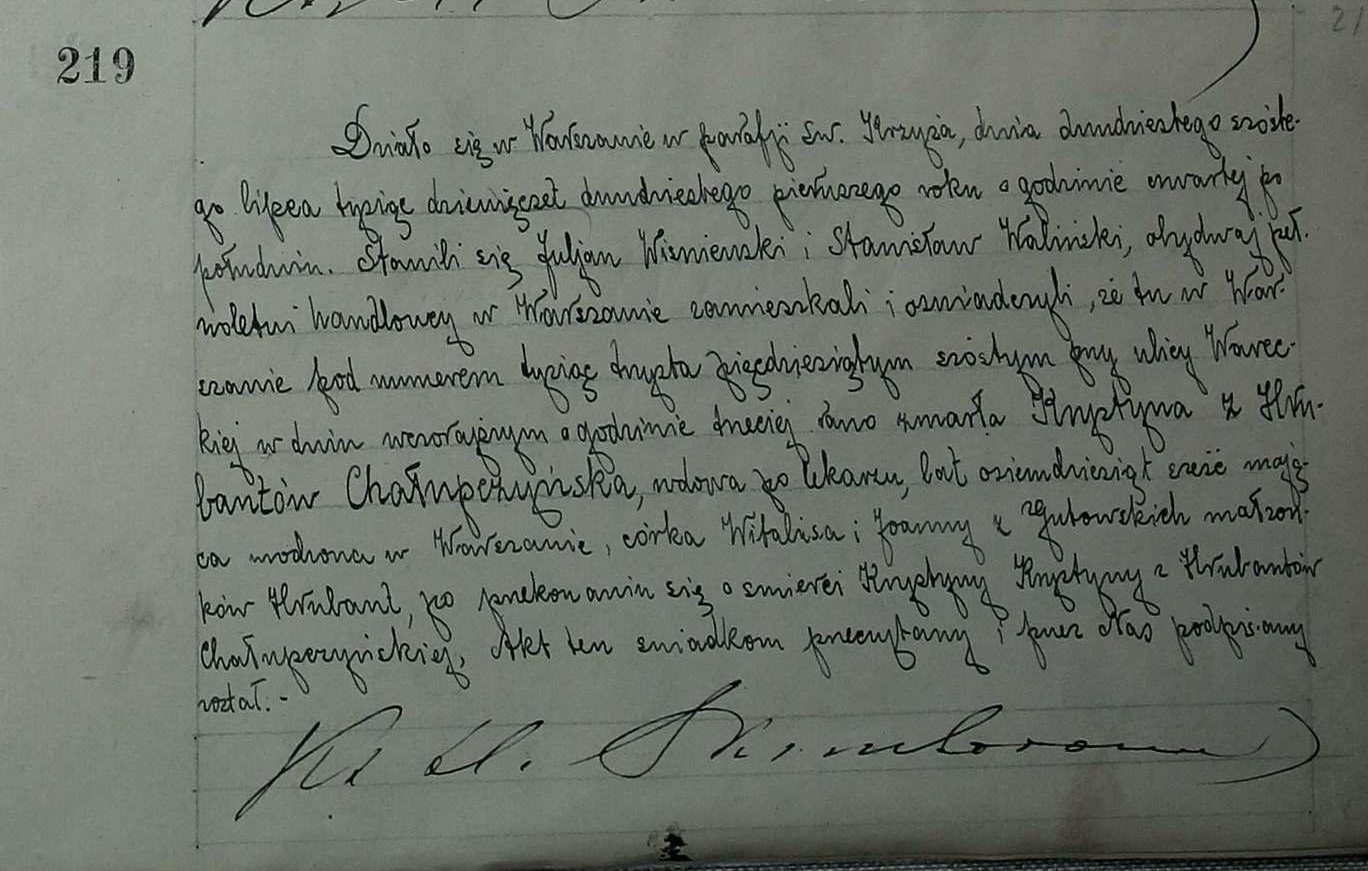 219
Działo się w Warszawie w parafji Św. Krzyża, dnia dwudziestego szóste-
go lipca tysiąc dziewięćset dwudziestego pierwszego roku o godzinie czwartej po
południu. Stawili się Juljan Wisniewski i Stanisław Waliński, obydwaj peł-
noletni handlowcy w Warszawie zamieszkali i oświadczyli, że tu w War-
szawie pod numerem tysiąc trzysta pięćdziesiątym szóstym przy ulicy Warec-
kiej w dniu wczorajszym o godzinie trzeciej rano zmarła Krystyna z Hru-
bantów Chałupczyńska, wdowa po lekarzu, lat osiemdziesiąt sześć mają-
ca urodzona w Warszawie, córka Witalisa i Joanny z Zgutowskich małżon-
ków Hrubant, po przekonaniu się o śmierci Krystyny Krystyny z Hrubantów
Chałupczyńskiej, Akt ten świadkom przeczytany i przez Nas podpisany
został. -